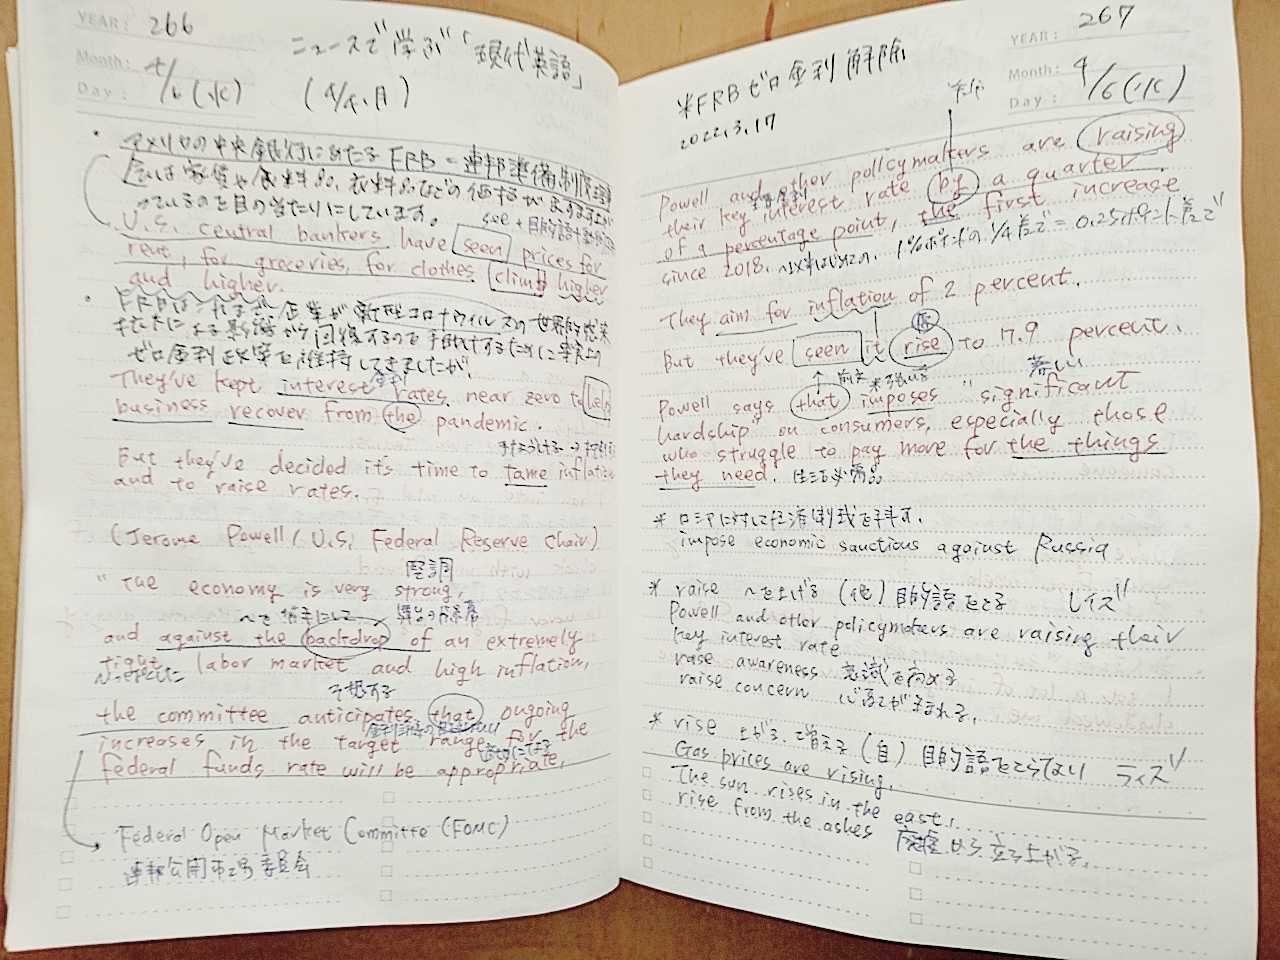 YEAR: 266
Month: 4/6(水)
Day:
ニュースで学ぶ「現代英語」
(4/4、月)
・アメリカの中央銀行にあたるFRB=連邦準備制度理事
会は家賃や食料品、衣料品などの価格がますます上が
っているのを目の当たりにしています。
see+目的語+動詞
U.S. central bankers have seen prices for
rent, for groceries, for clothes climb higher
and higher.
・FRBはこれまで、企業が新型コロナウイルスの世界的感染
による影響から回復するのを手助けするために
ゼロ金利を維持してきましたが、
金利
They've kept interest rates near zero to help
business recover from the pandemic.
But they've decided it's time to tame inflation
and to raise rates.
(Jerome Powell / U.S. Federal Reserve Chair)
堅調
"The economy is very strong,
〜を背景にして
and against the backdrop of an extremely
tight labor market and high inflation,
予想する
the committee anticipates that ongoing
increases in the target range for the
適切になる
federal funds rate will be appropriate.
Federal Open Market Committe (FOMC)
連邦公開市場委員会
267
YEAR:
Month: 4/6(水)
Day:
※FRBゼロ金利解除
2022.3.17
Powell and other policymakers are raising
政策金利
their key interest rate by a quarter
of a percentage point, the first increase
since 2018. 〜以来はじめての、1%ポイントの1/4差で=0.25ポイント差で
They aim for inflation of 2 percent.
But they've seen it rise to 7.9 percent.
↑ 前文 ※強いる
著しい
Powell says that imposes "significant
hardship" on consumers, especially those
who struggle to pay more for the things
they need. 生活必需品
* ロシアに対して経済制裁を科す。
impose economic sanctions against Russia
* raise 〜を上げる (他) 目的語をとる レイズ
Powell and other policymakers are raising their
key interest rate
rase awareness 意識を高める
raise concern 心配が生まれる。
* rise 上がる、増える (自) 目的語をとらない ライズ
Gas prices are rising.
The sun rises in the east.
rise from the ashes 廃墟から立ち上がる。